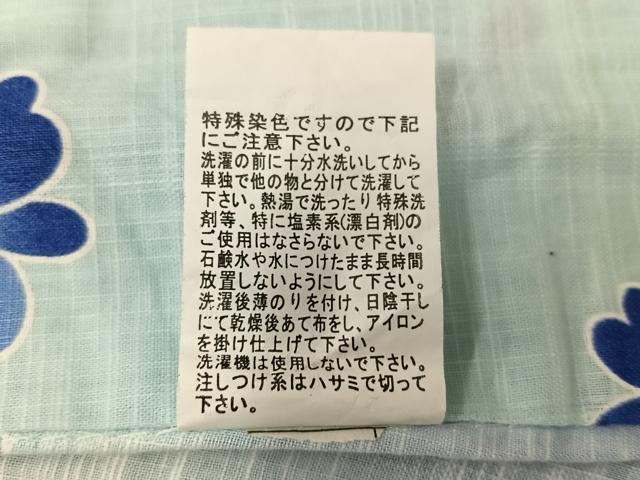 特殊染色ですので下記
にご注意下さい。
洗濯の前に十分水洗いしてから
単独で他の物と分けて洗濯して
下さい。熱湯で洗ったり特殊洗
剤等、特に塩素系(漂白剤)の
ご使用はなさらないで下さい。
石鹸水や水につけたまま長時間
放置しないようにして下さい。
洗濯後薄のりを付け、日陰干し
にて乾燥後あて布をし、アイロン
を掛け仕上げて下さい。
洗濯機は使用しないで下さい。
注しつけ系はハサミで切って
下さい。